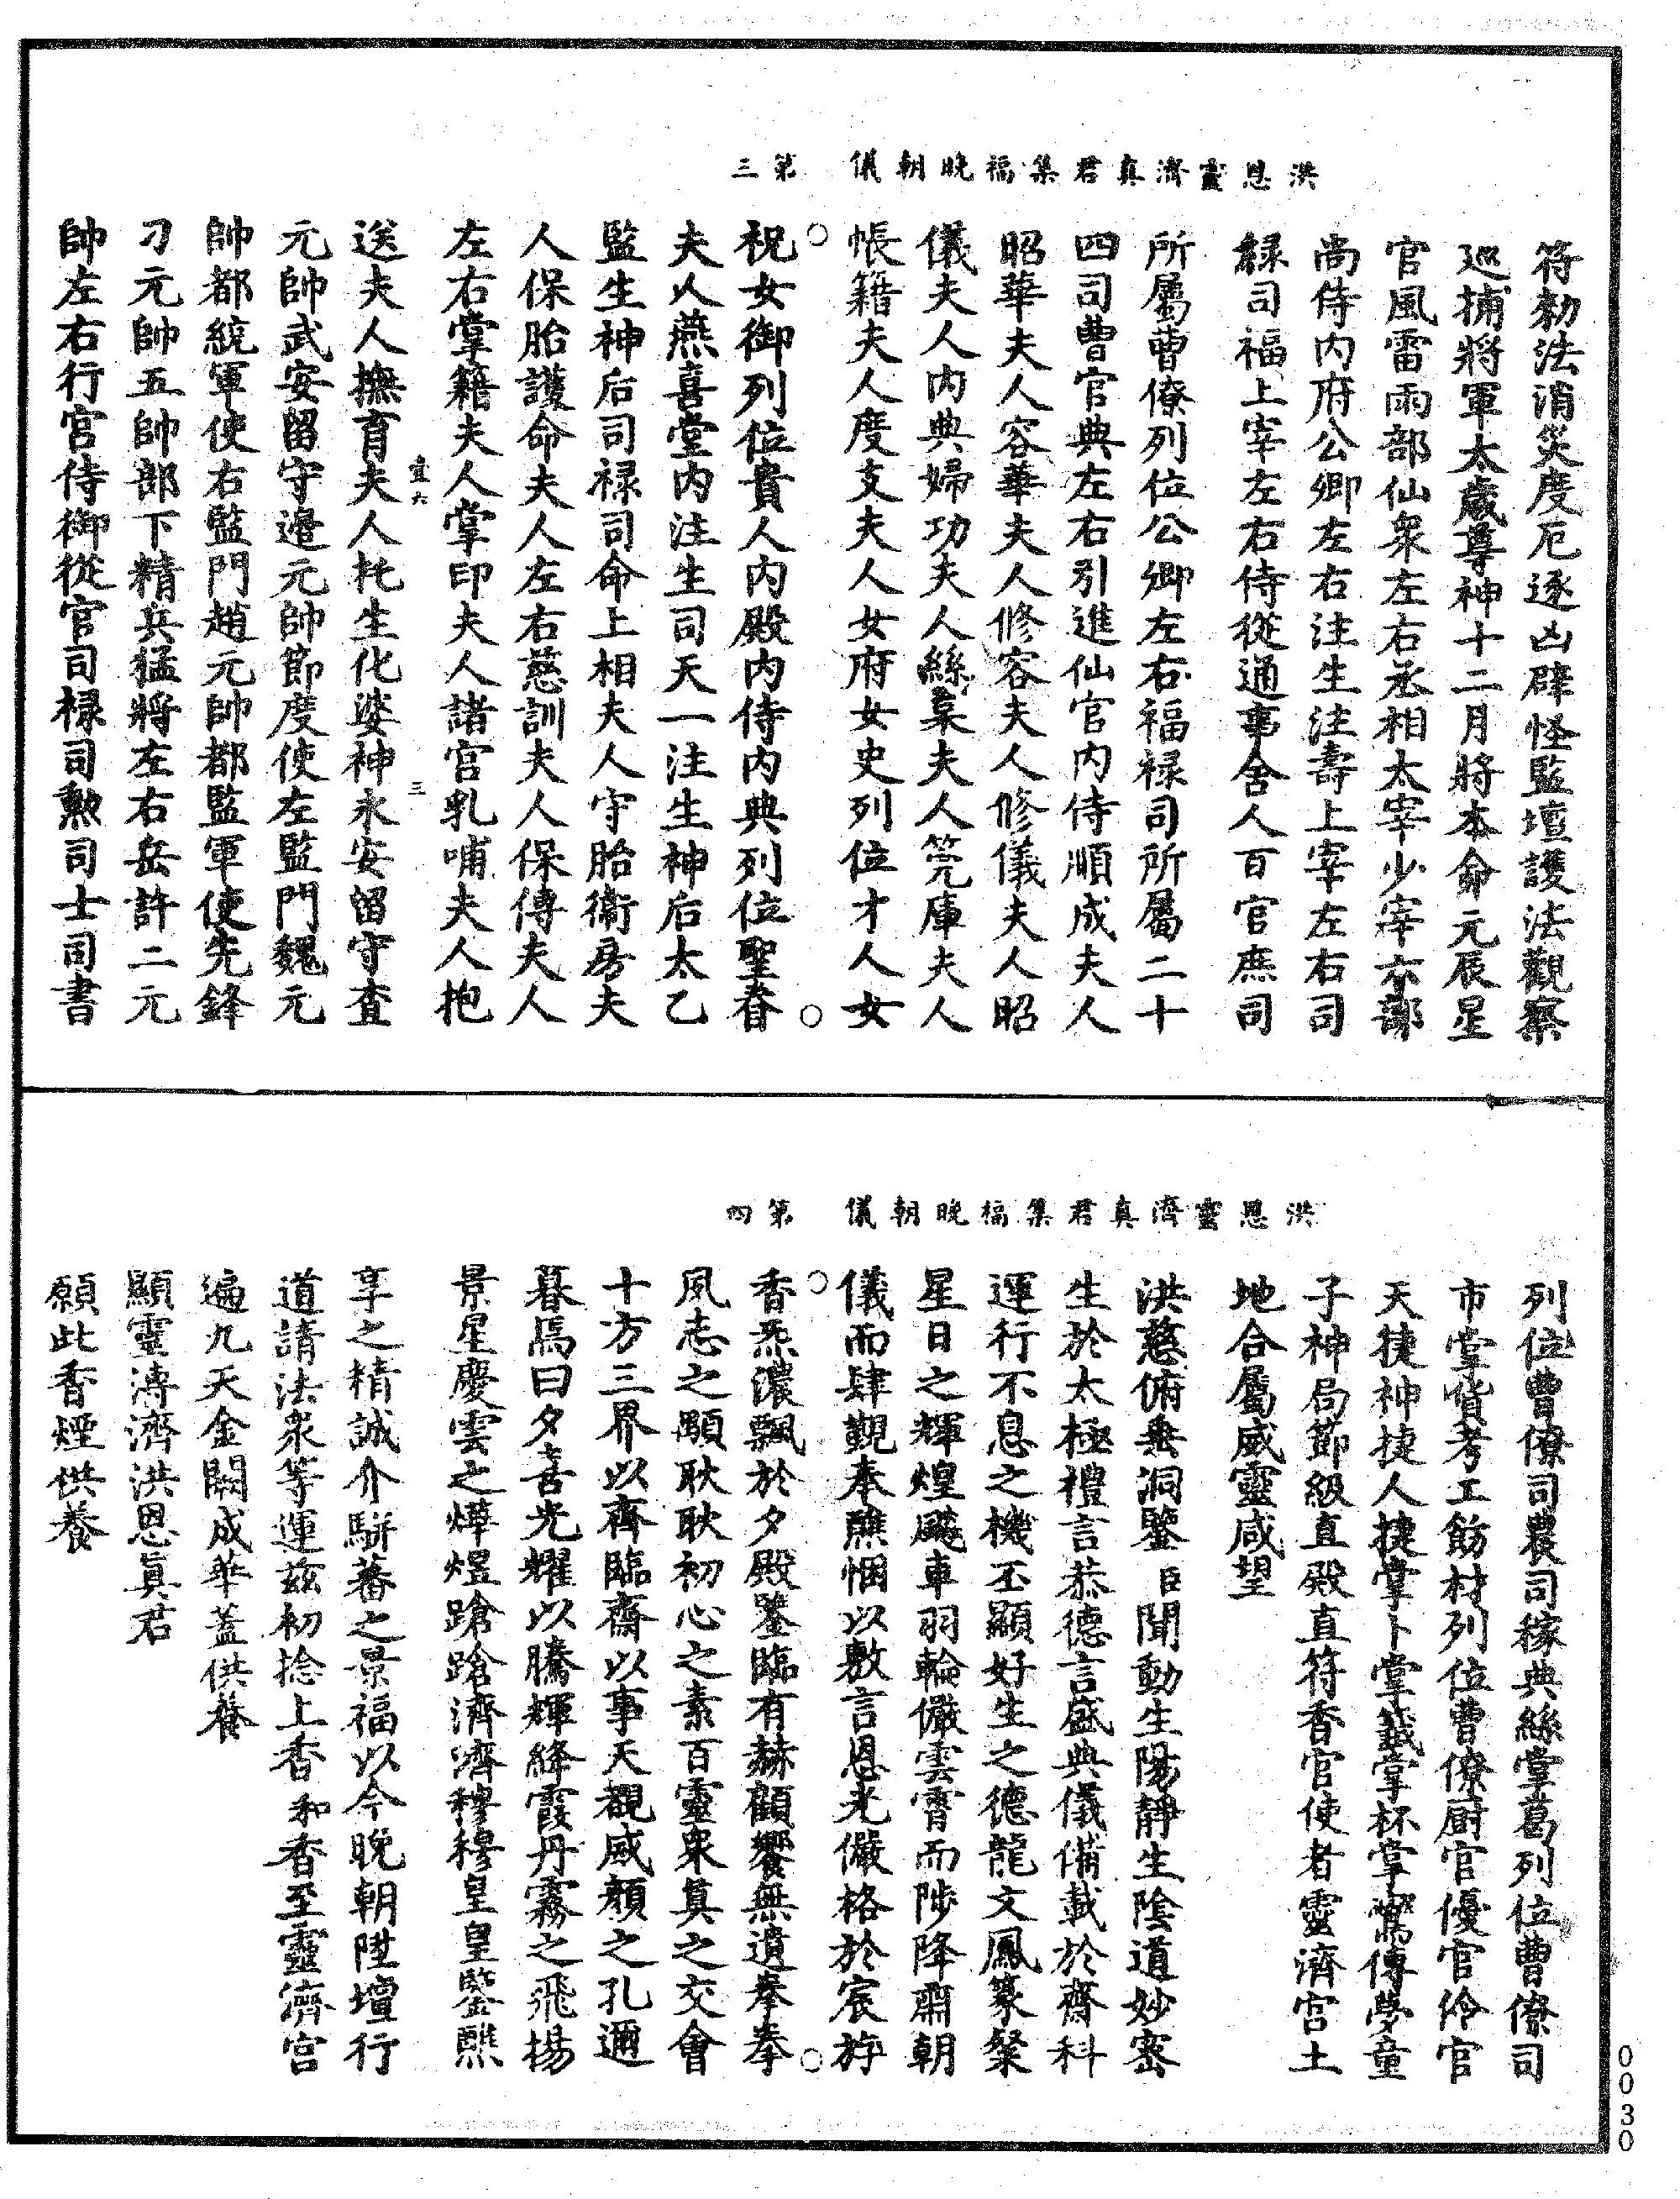 洪恩靈濟真君集福晚朝儀 第三
符勑法消災度厄逐凶辟怪監壇護法觀察
巡捕將軍太歲尊神十二月將本命元辰星
官風雷雨部仙衆左右丞相太宰少宰六部
尚侍內府公卿左右注生注壽上宰左右司
祿司福上宰左右侍從通事舍人百官庶司
所屬曹僚列位公卿左右福祿司所屬二十
四司曹官典左右引進仙官內侍順成夫人
昭華夫人容華夫人修容夫人修儀夫人昭
儀夫人內典婦功夫人絲枲夫人筦庫夫人
帳籍夫人度支夫人女府女史列位才人女
祝女御列位貴人內殿內侍內典列位聖眷
夫人燕喜堂內注生司天一注生神后太乙
監生神后司祿司命上相夫人守胎衞房夫
人保胎護命夫人左右慈訓夫人保傅夫人
左右掌籍夫人掌印夫人諸宮乳哺夫人抱
送夫人撫育夫人托生化婆神永安留守查
壹六 三
元帥武安留守邊元帥節度使左監門魏元
帥都統軍使右監門趙元帥都監軍使先鋒
刁元帥五帥部下精兵猛將左右岳許二元
帥左右行宮侍御從官司祿司勲司士司書
洪恩靈濟真君集福晚朝儀 第四
列位曹僚司農司稼典絲掌葛列位曹僚司
市掌貨考工飭材列位曹僚廚官優官伶官
天捷神捷人捷掌卜掌籤掌杯掌鸞傳夢童
子神局節級直殿直符香官使者靈濟宮土
地合屬威靈咸望
洪慈俯垂洞鑒臣聞動生陽靜生陰道妙宻
生於太極禮言恭德言盛典儀備載於齋科
運行不息之機丕顯好生之德龍文鳳篆粲
星日之輝煌飈車羽輪儼雲霄而陟降肅朝
儀而肆覲奉醮悃以敷言恩光儼格於宸斿
香炁濃飄於夕殿鑒臨有赫顧饗無遺拳拳
夙志之顒耿耿初心之素百靈衆真之交會
十方三界以齊臨齋以事天覩威顏之孔邇
暮焉曰夕喜光耀以騰輝絳霞丹霧之飛揚
景星慶雲之燁煜蹌蹌濟濟穆穆皇皇鑒熊
享之精誠介駢蕃之景福以今晚朝陞壇行
道請法衆等運茲初捻上香和香至靈濟宮
遍九天金闕成華蓋供養
顯靈溥濟洪恩真君
願此香煙供養
0030